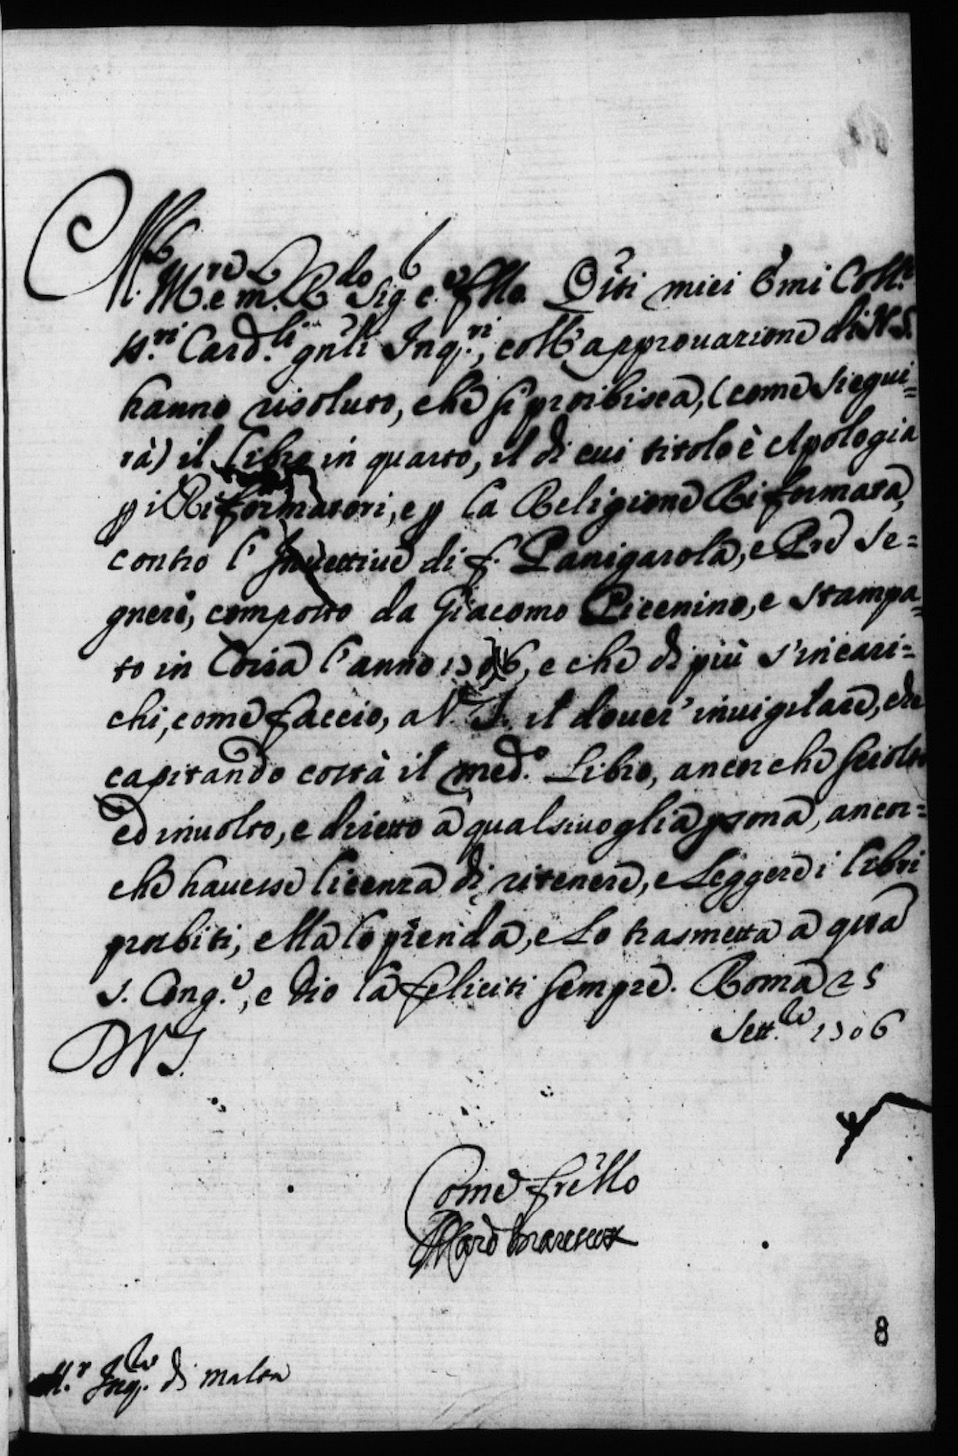 Ill.re e m. R.do Sig.r c. frllo. Q.sti miei Emi Coll.hi
SS.ri Card.li gnli Inq.ri, coll'approuazione di N. S.
hanno risoluto, che si proibisca, (come siegui=
rà) il Libro in quarto, il di cui titolo è Apologia
p i Riformatori, e p la Religione Riformata,
contro l'Inuettiue di f. Panigarola, e Pre Se=
gneri, composto da Giacomo Picenino, e stampa=
to in Coira l'anno 1706, e che di più s'incari=
chi, come faccio, a V. S. il douer' inuigilare, che
capitando costà il med.o Libro, ancorche sciolto
ed inuolto, e diretto a qualsiuoglia psona, ancor=
che hauesse licenza di ritenere, e Leggere i libri
proibiti, ella lo prenda, e Lo trasmetta a qsta
S. Cong.e, e Dio la feliciti sempre. Roma 25
Sett.bre 1706
D V S.
Come frello
Il Card
8
M.r Inq.re di Malta